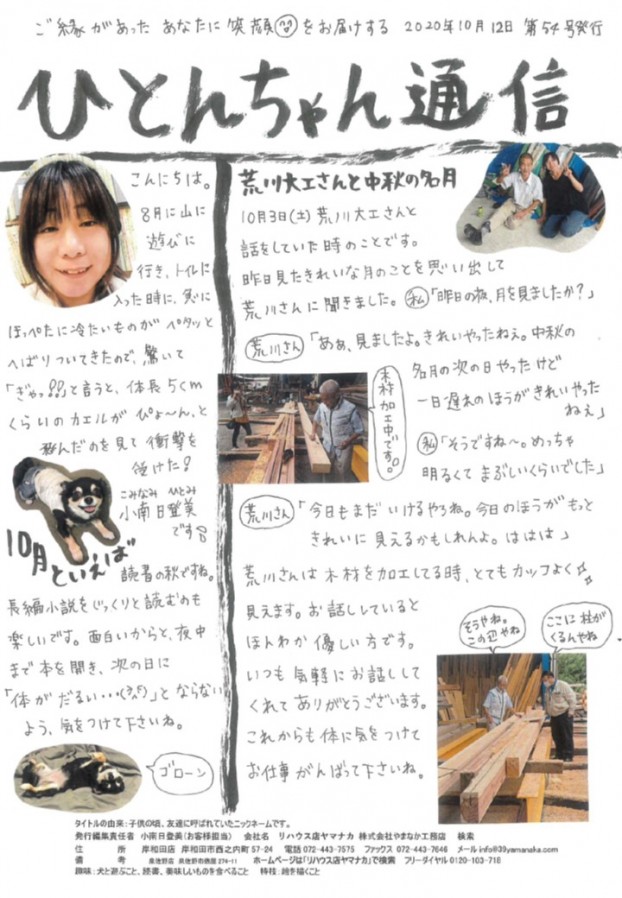 ご縁があった あなたに 笑顔をお届けする 2020年10月12日 第54号発行
ひとんちゃん通信
こんにちは。
8月に山に
遊びに
行き、トイレに
入った時に、急に
ほっぺたに冷たいものが ペタッと
へばりついてきたので、驚いて
「ぎゃっ!!」と言うと、体長5cm
くらいのカエルが ぴょ〜ん、と
飛んだのを見て 衝撃を
受けた!
こみなみ ひとみ
小南日登美
です
10月といえば
読書の秋ですね。
長編小説をじっくりと読むのも
楽しいです。面白いからと、夜中
まで本を開き、次の日に
「体がだるい・・・」とならない
よう、気をつけて下さいね。
ゴローン
荒川大工さんと中秋の名月
10月3日(土)荒川大工さんと
話をしていた時のことです。
昨日見たきれいな月のことを思い出して
荒川さんに聞きました。 私「昨日の夜、月を見ましたか?」
荒川さん「あぁ、見ましたよ。きれいやったねぇ。中秋の
名月の次の日やったけど
一日遅れのほうがきれいやった
ねぇ」
木材加工中です。
私「そうですね〜。めっちゃ
明るくてまぶしいくらいでした」
荒川さん「今日もまだいけるやろね。今日のほうがもっと
きれいに見えるかもしれんよ。ははは」
荒川さんは木材を加工してる時、とてもカッコよく
見えます。お話ししていると
ほんわか優しい方です。
いつも気軽にお話しして
くれてありがとうございます。
これからも体に気をつけて
お仕事がんばって下さいね。
そうやね。
この辺やね
ここに柱が
くるんやね
タイトルの由来:子供の頃、友達に呼ばれていたニックネームです。
発行編集責任者 小南日登美(お客様担当) 会社名 リハウス店ヤマナカ 株式会社やまなか工務店 検索
住 所 岸和田店 岸和田市西之内町57-24 電話 072-443-7575 ファックス 072-443-7646 メール info@39yamanaka.com
備 考 泉佐野店 泉佐野市鶴原274-11 ホームページは「リハウス店ヤマナカ」で検索 フリーダイヤル 0120-103-718
趣味:犬と遊ぶこと、読書、美味しいものを食べること 特技:絵を描くこと